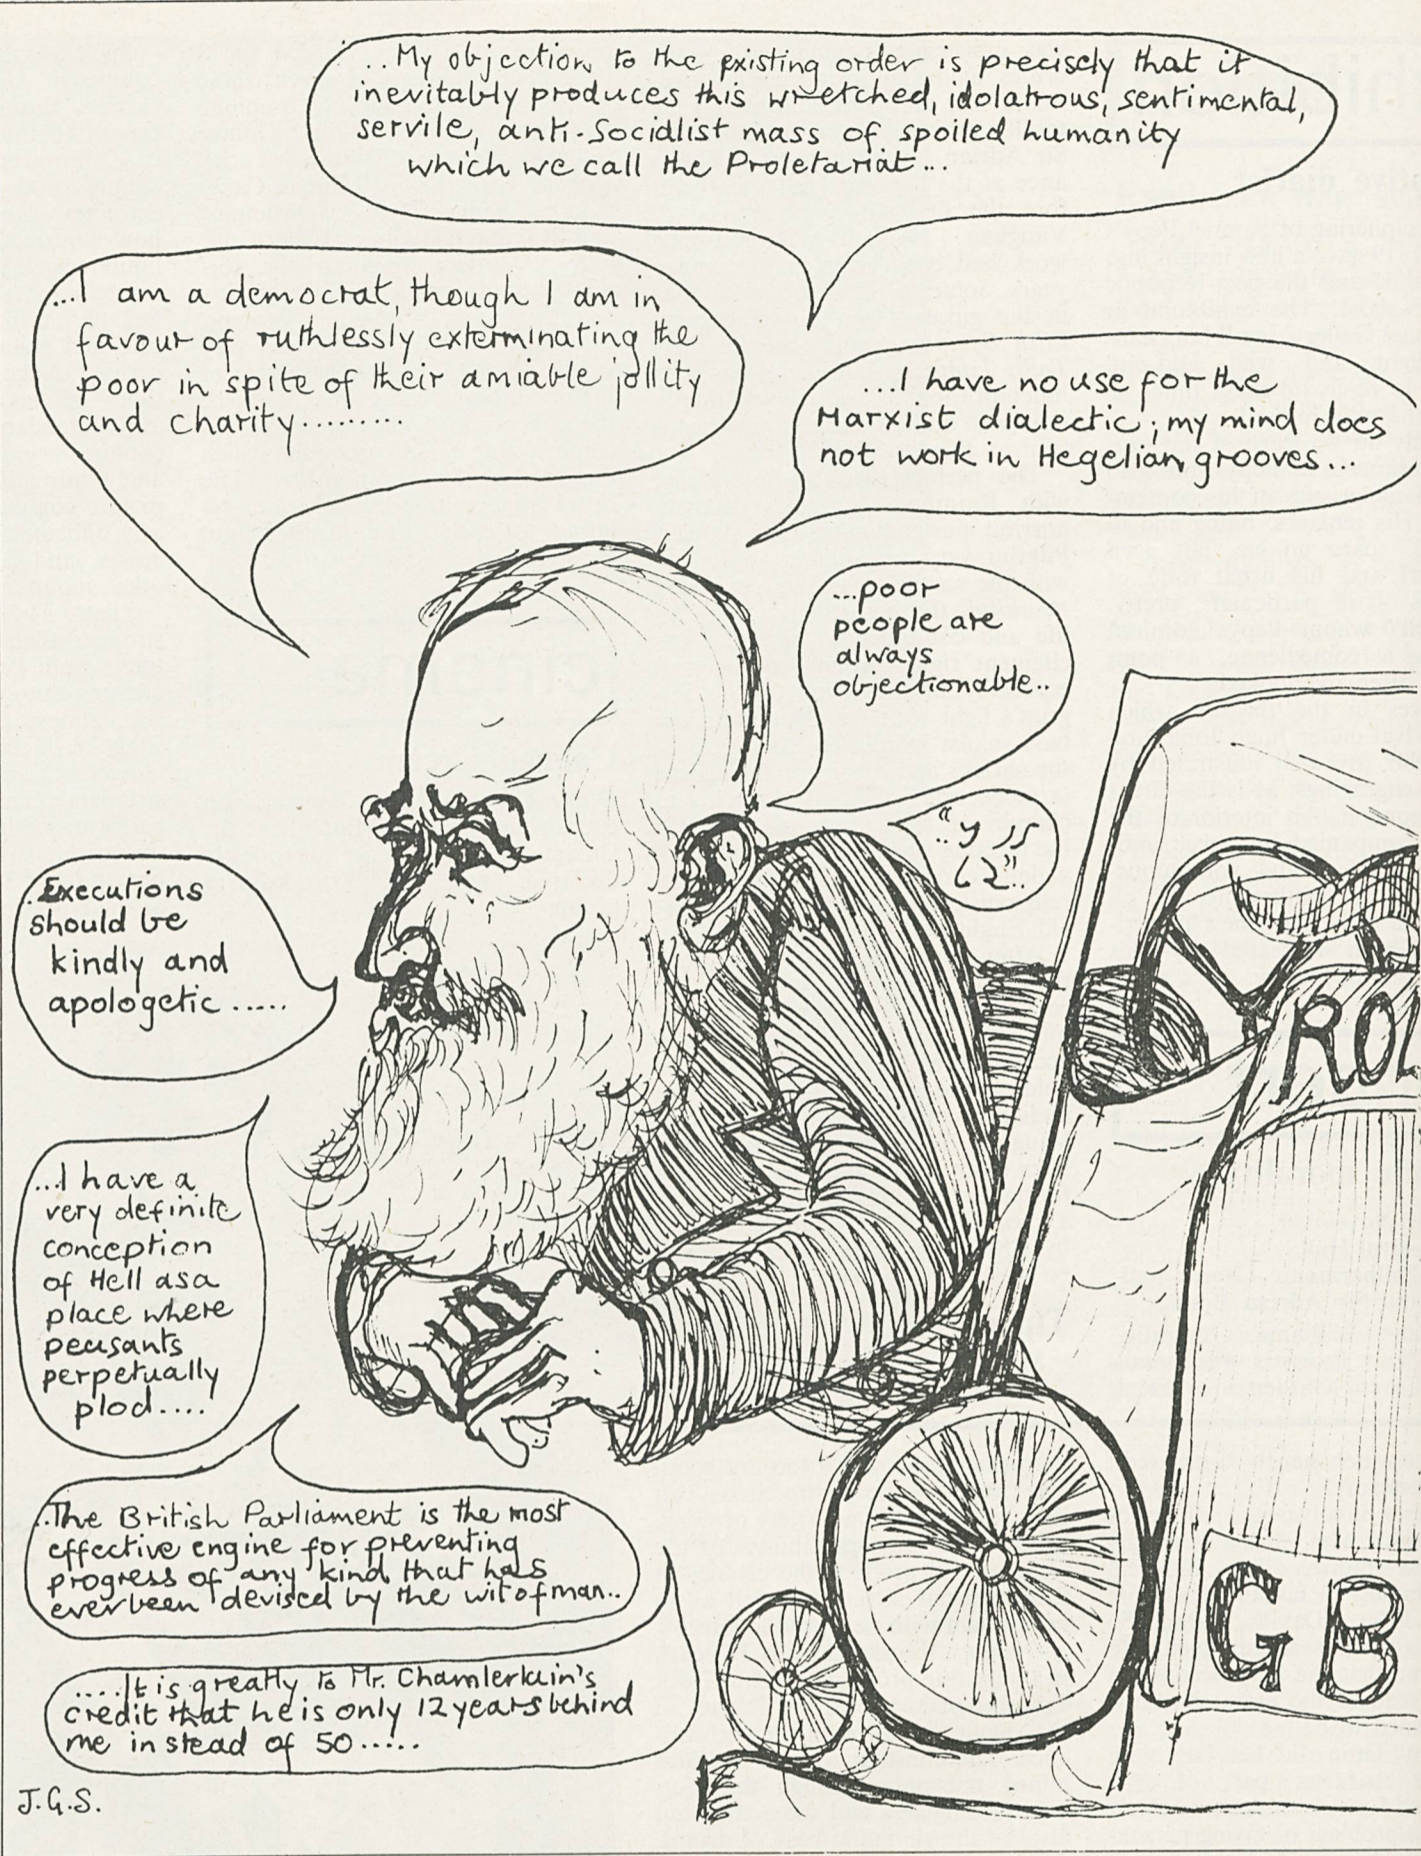 ..My objection to the existing order is precisely that it
inevitably produces this wretched, idolatrous, sentimental,
servile, anti-Socialist mass of spoiled humanity
which we call the Proletariat...
...I am a democrat, though I am in
favour of ruthlessly exterminating the
poor in spite of their amiable jollity
and charity.........
...I have no use for the
Marxist dialectic; my mind does
not work in Hegelian grooves...
...poor
people are
always
objectionable..
.Executions
should be
kindly and
apologetic......
...I have a
very definite
conception
of Hell as a
place where
peasants
perpetually
plod....
..The British Parliament is the most
effective engine for preventing
progress of any kind that has
ever been devised by the wit of man..
....It is greatly to Mr. Chamlerlain's
credit that he is only 12 years behind
me instead of 50.....
ROL
GB
J.G.S.